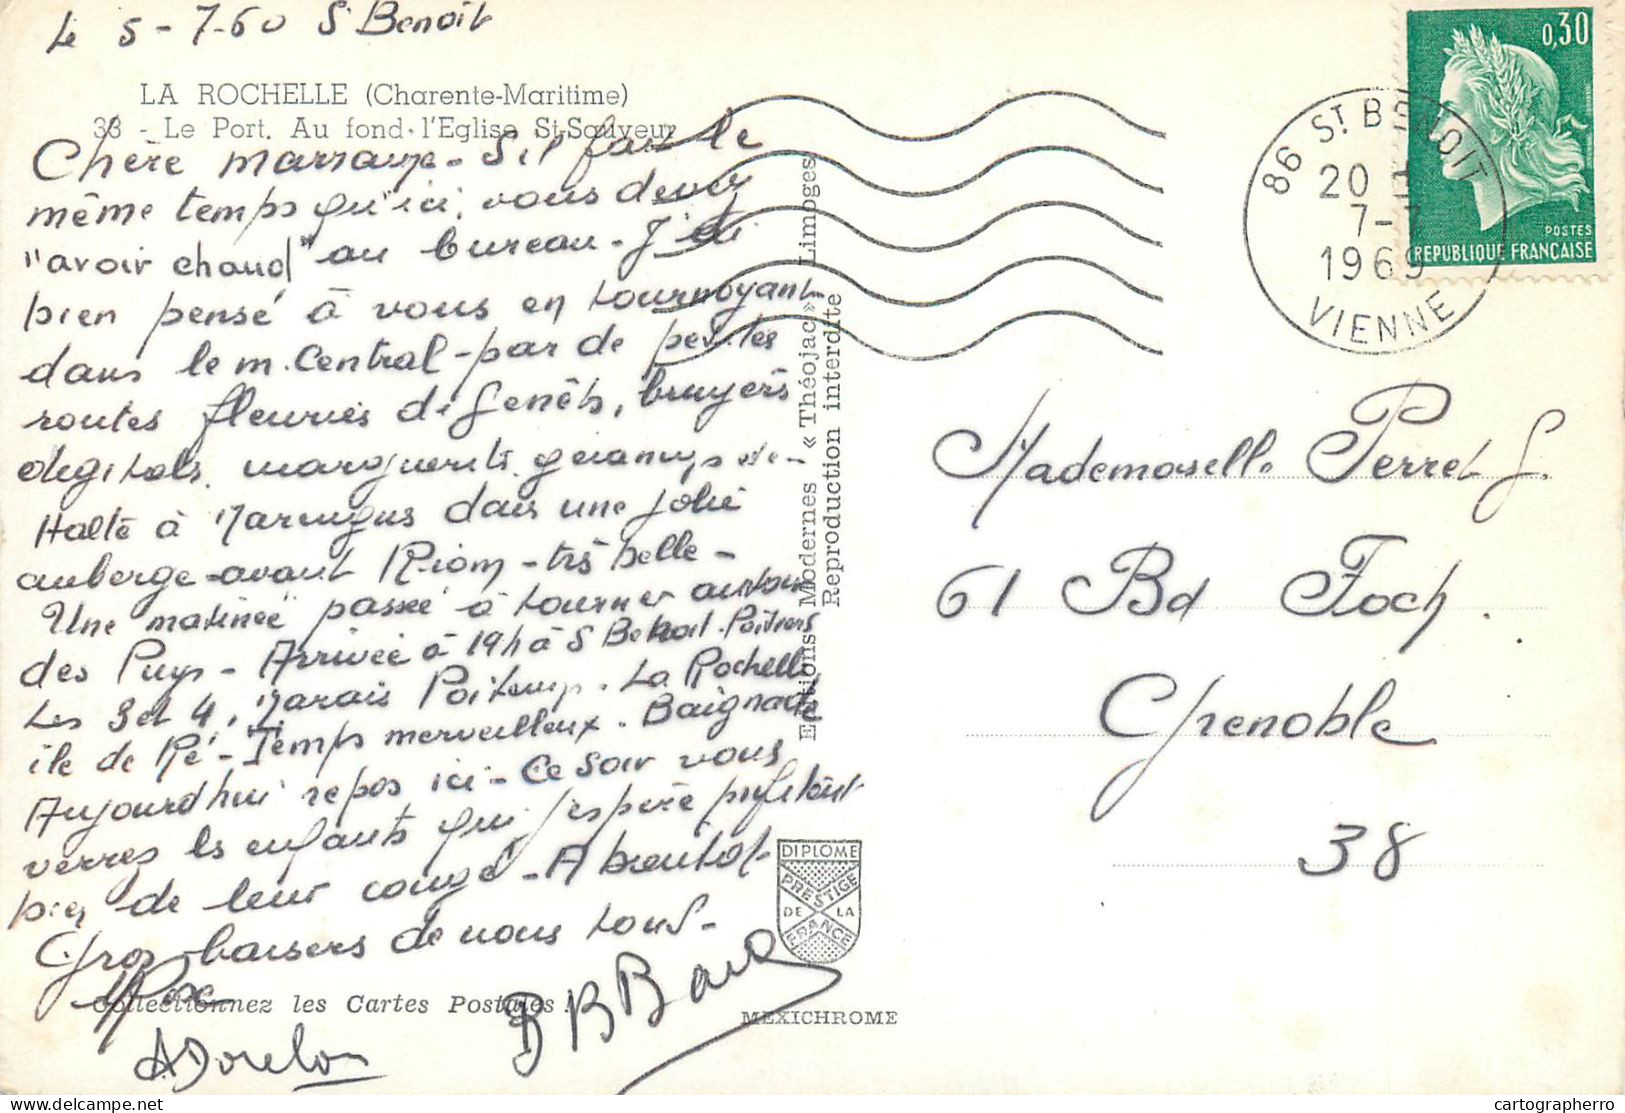 Le 5-7-60 St Benoit
LA ROCHELLE (Charente-Maritime)
38 - Le Port. Au fond l'Eglise St-Sauveur
Chère marraine - S'il fait le
même temps qu'ici, vous devez
"avoir chaud" au bureau - J'ai
bien pensé à vous en tournoyant
dans le m. Central - par de petites
routes fleuries de genêts, bruyers
digitals, marguerits, géraniums etc -
Halte à Maringues dans une jolie
auberge - avant Riom - très belle -
Une matinée passée à tourner autour
des Puys - Arrivée à 19h à St Benoit - Poitiers
Les 3 et 4, Marais Poitevin - La Rochelle
île de Ré - Temps merveilleux - Baignade
Aujourd'hui repos ici - Ce soir vous
verrez les enfants qui j'espère profitent
bien de leur congé - A bientôt -
Gros baisers de nous tous -
BBB
Collectionnez les Cartes Postales !
Editions Modernes « Théojac » Limoges
Reproduction interdite
DIPLOME
PRESTIGE
DE LA
FRANCE
MEXICHROME
0,30
POSTES
REPUBLIQUE FRANÇAISE
86 ST BENOIT
20 H
7-7
1969
VIENNE
Mademoiselle Perret G.
61 Bd Foch.
Grenoble
38
cartographerro